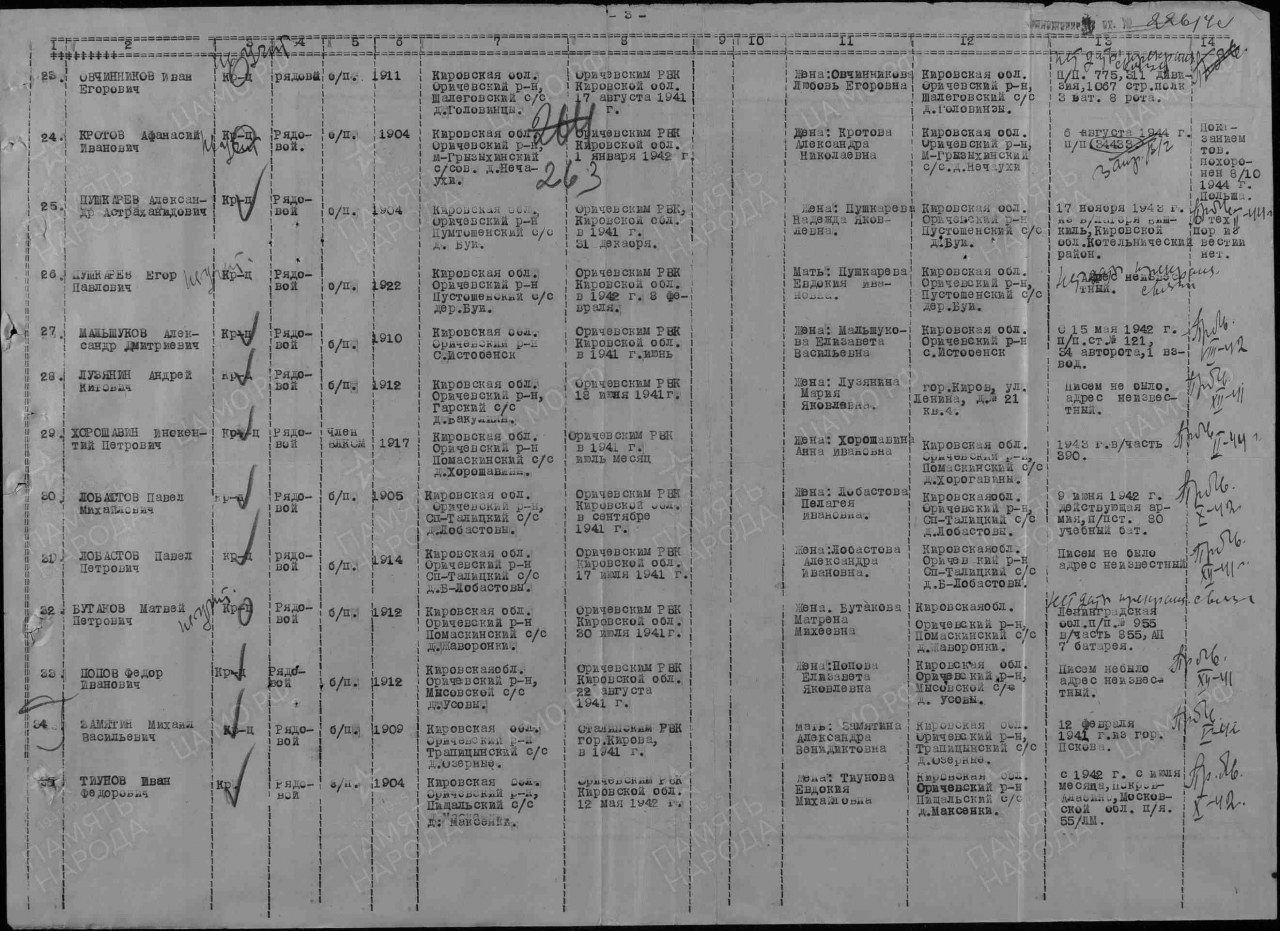 - 3 -
226/44
1 2 3 4 5 6 7 8 9 10 11 12 13 14
23. ОВЧИННИКОВ Иван Егорович
Кр-ц
рядовой
б/п.
1911
Кировская обл.
Оричевский р-н,
Шалеговский с/с
д.Головинцы.
Оричевским РВК
Кировской обл.
17 августа 1941
г.
Жена:Овчинникова
Любовь Егоровна
Кировская обл.
Оричевский р-н,
Шалеговский с/с
д.Головинзы.
п/п. 775,311 диви-
зия,1067 стр.полк
3 бат. 8 рота.
24. КРОТОВ Афанасий
Иванович
Кр-ц
Рядо-
вой.
б/п.
1904
Кировская обл.
Оричевский р-н,
М-Грызыхинский
с/сов. д.Неча-
ухи.
264
263
Оричевским РВК
Кировской обл.
1 января 1942 г.
Жена: Кротова
Александра
Николаевна
Кировская обл.
Оричевский р-н,
М-Грызыхинский
с/с.д.Нечаухи
6 августа 1944 г.
п/п 34433
Пока-
занием
тов.
похоро-
нен 8/10
1944 г.
Польша.
25. ПУШКАРЕВ Алексан-
др Астраханидович
Кр-ц
Рядо-
вой
б/п.
1904
Кировская обл.
Оричевский р-н
Пумтошенский с/с
д. Буи.
Оричевским РВК,
Кировской обл.
в 1941 г.
31 декабря.
Жена: Пушкарева
Надежда Яков-
левна.
Кировская обл.
Оричевский р-н
Пустошенский с/с
д.Буи.
17 ноября 1943 г.
из в/лагеря Виш-
киль,Кировской
обл.Котельнический
район.
С тех
пор из-
вестий
нет.
26. ПУШКАРЕВ Егор
Павлович
Кр-ц
Рядо-
вой
б/п.
1922
Кировская обл.
Оричевский р-н
Пустошенский с/с
дер.Буи.
Оричевским РВК
Кировской обл.
в 1942 г. 8 фе-
враля.
Мать: Пушкарева
Евдокия Ива-
новна.
Кировская обл.
Оричевский р-н
Пустошенский с/с
дер.Буи.
Адрес неизвес-
тный.
27. МАЛЬШУКОВ Алек-
сандр Дмитриевич
Кр-ц
Рядо-
вой
б/п.
1910
Кировская обл.
Оричевский р-н
с.Истобенск
Оричевским РВК
Кировской обл.
в 1941 г.июнь
Жена: Мальшуко-
ва Елизавета
Васильевна
Кировская обл.
Оричевский р-н
с.Истобенск
С 15 мая 1942 г.
п/п.ст.№ 121,
34 авторота,1 вз-
вод.
Пр.бь.
VIII-42
28. ЛУЗЯНИН Андрей
Китович
Кр-ц
Рядо-
вой
б/п.
1912
Кировская обл.
Оричевский р-н,
Гарский с/с
д.Бакулина.
Оричевским РВК
Кировской обл.
18 июня 1941г.
Жена: Лузянина
Мария
Яковлевна.
гор.Киров, ул.
Ленина, д.№ 21
кв.4.
Писем не было.
адрес неизвес-
тный.
Пр.бь.
XII-41
29. ХОРОШАВИН Инокен-
тий Петрович
Кр-ц
Рядо-
вой
член
ВЛКСМ
1917
Кировская обл.
Оричевский р-н
Помаскинский с/с
д.Хорошавины.
Оричевским РВК
в 1941 г.
июль месяц
Жена: Хорошавина
Анна Ивановна
Кировская обл.
Оричевский р-н,
Помаскинский с/с
д.Хорогавины.
1943 г.в/часть
390.
Пр.бь.
II-44 г
30. ЛОБАСТОВ Павел
Михайлович
Кр-ц
Рядо-
вой
б/п.
1905
Кировская обл.
Оричевский р-н,
Сп-Талицкий с/с
д.Лобастовы.
Оричевским РВК
Кировской обл.
в сентябре
1941 г.
Жена: Лобастова
Пелагея
Ивановна.
Кировскаяобл.
Оричевский р-н,
Сп-Талицкий с/с
д.Лобастовы.
9 июня 1942 г.
действующая ар-
мия,п/пст. 80
учебный бат.
Пр.бь.
X-42
31. ЛОБАСТОВ Павел
Петрович
Кр-ц
рядо-
вой
б/п.
1914
Кировская обл.
Оричевский р-н
Сп-Талицкий с/с
д.Б-Лобастовы.
Оричевским РВК
Кировской обл.
17 июля 1941 г.
Жена:Лобастова
Александра
Ивановна.
Кировскаяобл.
Оричев кий р-н
Сп-Талицкий с/с
д.Б-Лобастовы.
Писем не было
адрес неизвестный
Пр.бь.
XII-41г.
32. БУТАКОВ Матвей
Петрович
Кр-ц
Рядо-
вой
б/п.
1912
Кировская обл.
Оричевский р-н
Помаскинский с/с
д.Жаворонки.
Оричевским РВК
Кировской обл.
30 июля 1941г.
Жена. Бутакова
Матрена
Михеевна
Кировскаяобл.
Оричевский р-н,
Помаскинский с/с
д.Жаворонки.
нет даты прекращ. связи
Ленинградская
обл.п/п.№ 955
в/часть 855,АП
7 батарея.
33. ПОПОВ Федор
Иванович
Кр-ц
Рядо-
вой
б/п.
1912
Кировскаяобл.
Оричевский р-н,
Мысовской с/с
д.Усовы.
Оричевским РВК
Кировской обл.
22 августа
1941 г.
Жена:Попова
Елизавета
Яковлевна
Кировской обл.
Оричевский р-н,
Мысовской с/с
д. Усовы.
Писем небыло
адрес неизвес-
тный.
Пр.бь.
XII-41
34. ЗАМЯТИН Михаил
Васильевич
Кр-ц
Рядо-
вой
б/п.
1909
Кировская обл.
Оричевский р-н
Трапицынский с/с
д.Озерние.
Сталинским РВК
гор.Кирова,
в 1941 г.
мать: Замятина
Александра
Венидиктовна
Кировская обл.
Оричевский р-н,
Трапицынский с/с
д.Озерние.
12 февраля
1941 г.из гор.
Пскова.
35. ТИУНОВ Иван
Федорович
Кр-ц
Рядо-
вой
б/п.
1904
Кировская обл.
Оричевский р-н,
Пищальский с/с
д. Максенки.
Оричевским РВК
Кировской обл.
12 мая 1942 г.
Жена: Тиунова
Евдокия
Михайловна
Кировская обл.
Оричевский р-н
Пищальский с/с
д.Максенки.
с 1942 г. с июля
месяца,Покров-
Алабино,Москов-
ской обл. п/я.
55/ЛМ.
Пр.бь.
X-42.
ПАМЯТЬ НАРОДА
ЦАМО.РФ